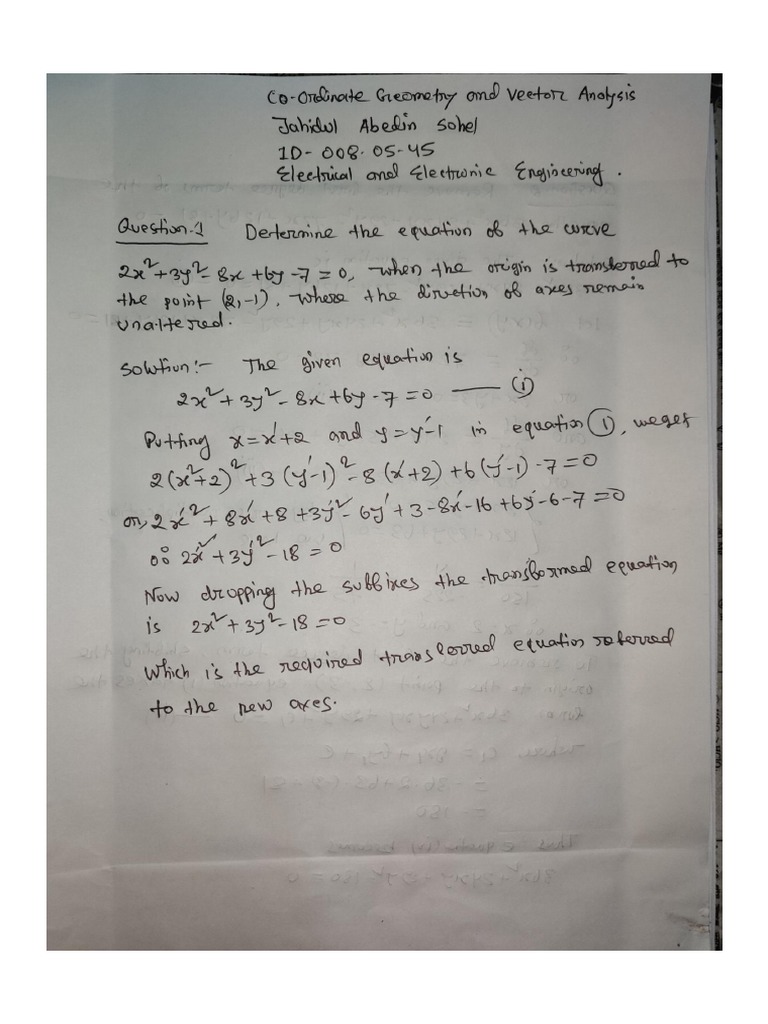 Co-ordinate Geometry and Vector Analysis
Jahidul Abedin Sohel
ID- 008-05-45
Electrical and Electronic Engineering.
Question-1 Determine the equation of the curve
2x²+3y²-8x+6y-7=0, when the origin is transferred to
the point (2,-1), where the direction of axes remain
unaltered.
Solution:- The given equation is
2x²+3y²-8x+6y-7=0 —— (i)
Putting x=x'+2 and y=y'-1 in equation (1), we get
2(x²+2)²+3(y'-1)²-8(x'+2)+6(y'-1)-7=0
or, 2x'²+8x'+8+3y'²-6y'+3-8x'-16+6y'-6-7=0
∴ 2x'²+3y'²-18=0
Now dropping the suffixes the transformed equation
is 2x²+3y²-18=0
Which is the required transferred equation referred
to the new axes.